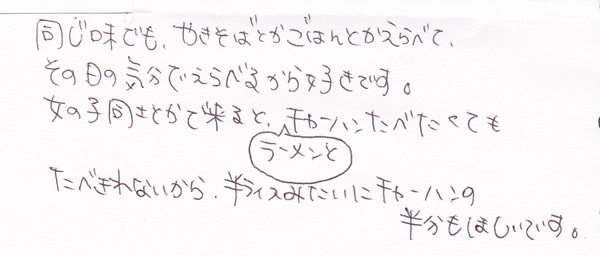 同じ味でも、やきそばとかごはんとかえらべて、
その日の気分でえらべるから好きです。
女の子同士とかで来ると、ラーメンとチャーハンたべたくても
たべきれないから、半ライスみたいにチャーハンの
半分もほしいです。